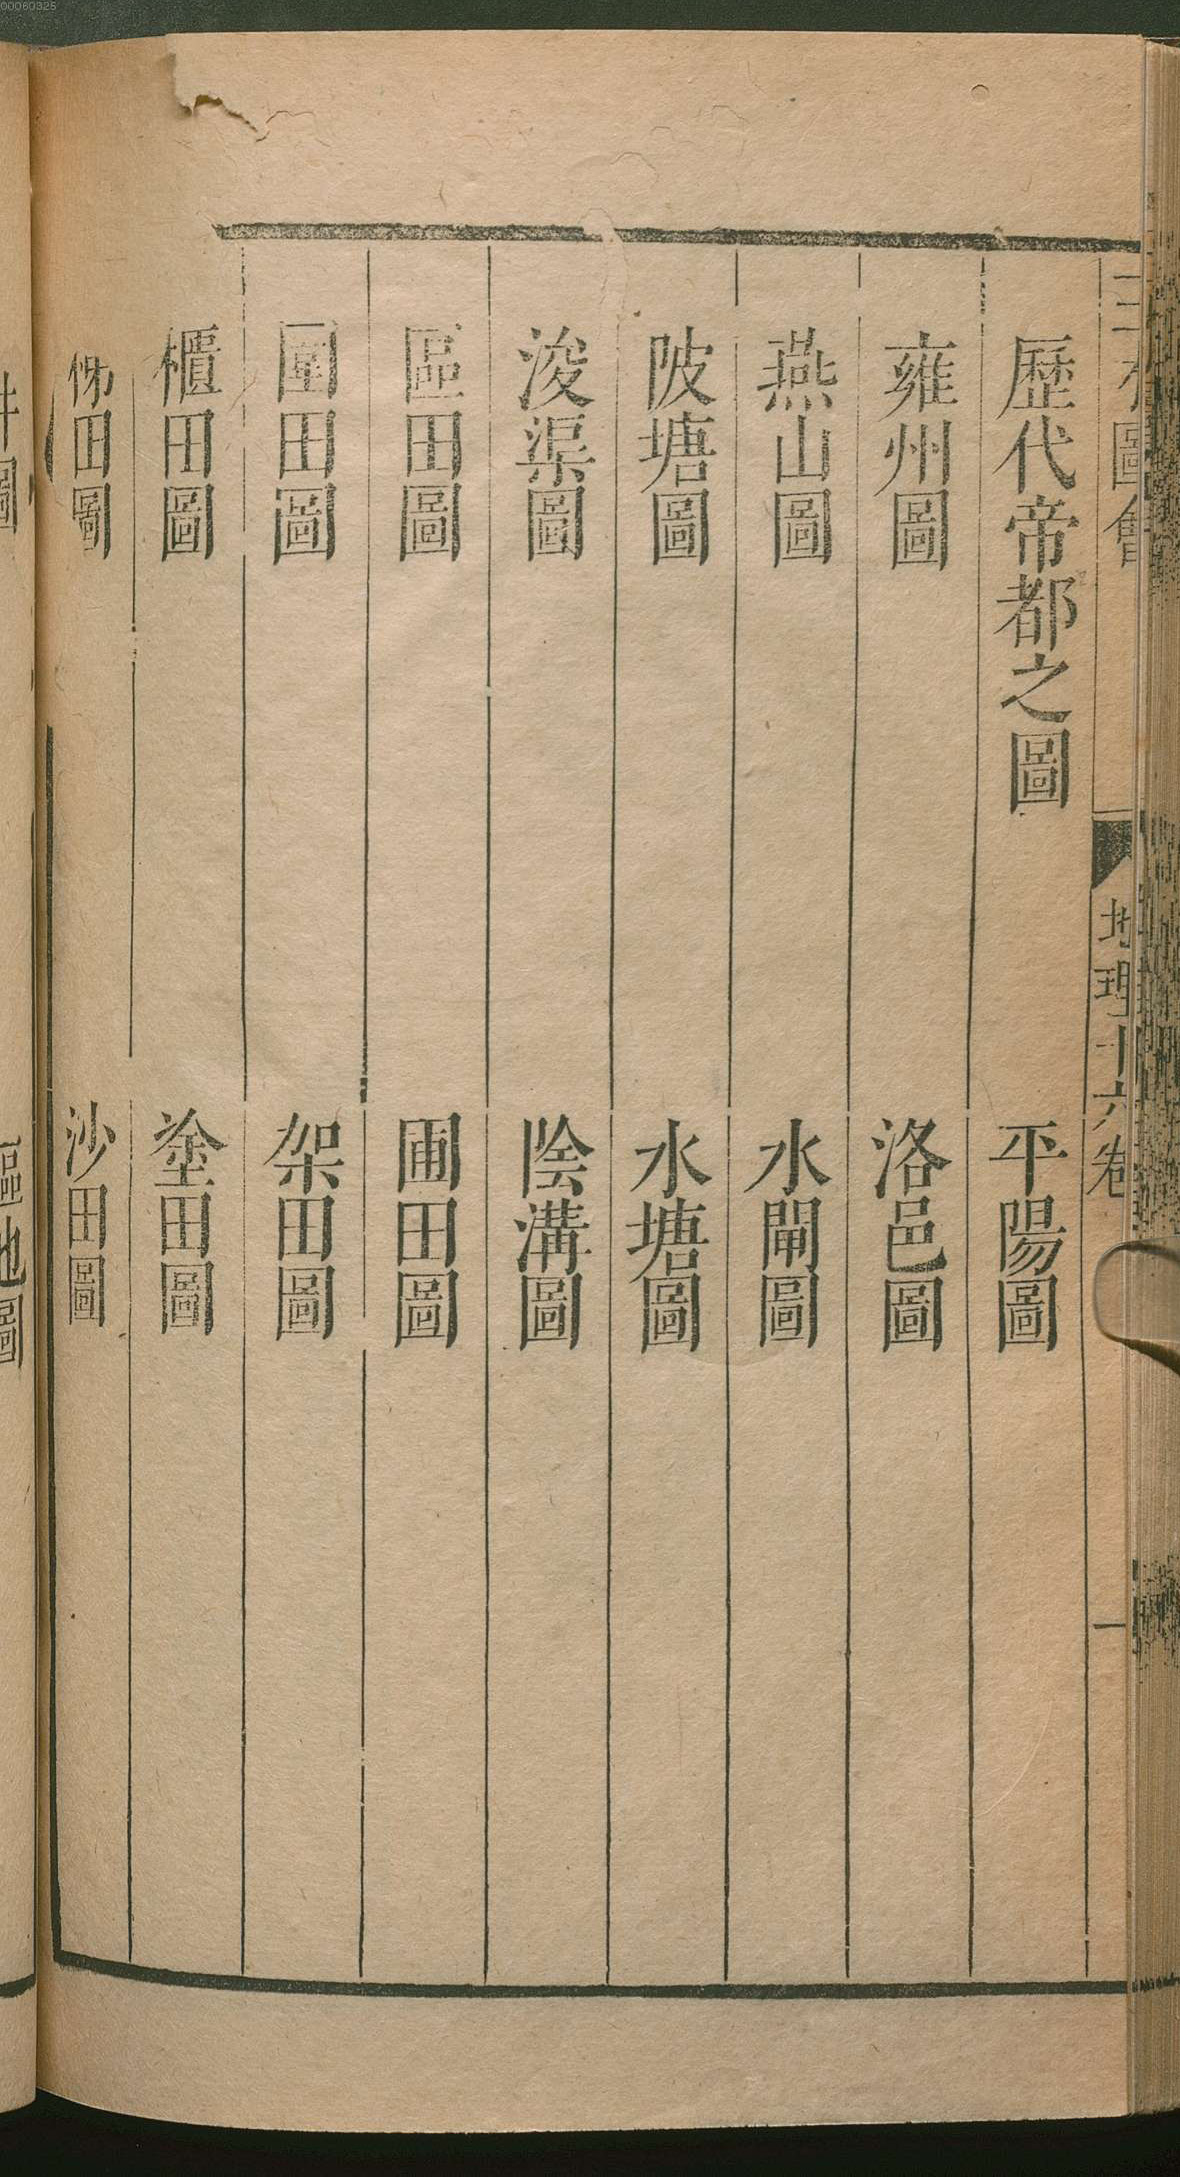 00060325
三才圖會
地理十六卷
一
歷代帝都之圖
平陽圖
雍州圖
洛邑圖
燕山圖
水閘圖
陂塘圖
水塘圖
浚渠圖
陰溝圖
區田圖
圃田圖
圍田圖
架田圖
櫃田圖
塗田圖
梯田圖
沙田圖
井圖
漚池圖